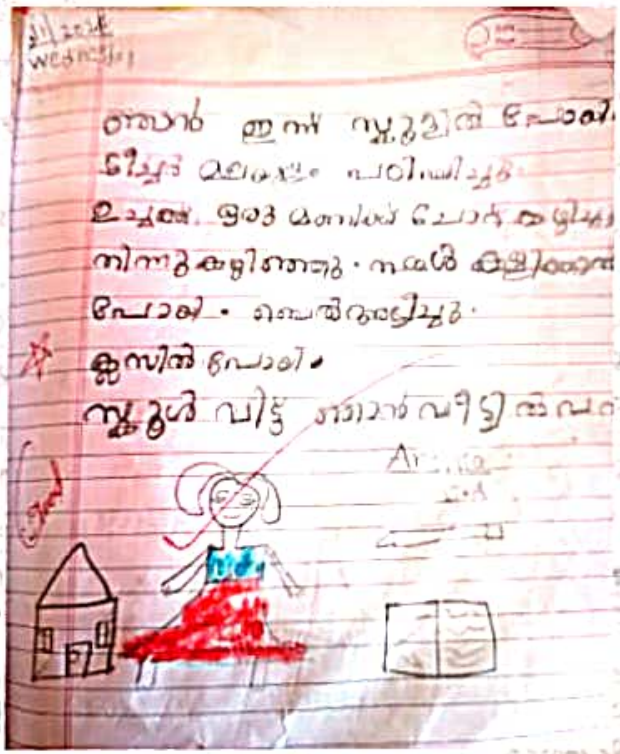 Wednesday
ഞാൻ ഇന്ന് സ്കൂളിൽ പോയി.
ടീച്ചർ മലയാളം പഠിപ്പിച്ചു.
ഉച്ചക്ക് ഒരു മണിക്ക് ചോറ്
തിന്നു കഴിഞ്ഞു. നമ്മൾ കളിക്കാൻ
പോയി. ബെൽ അടിച്ചു.
ക്ലസിൽ പോയി.
സ്കൂൾ വിട്ട് ഞാൻ വീട്ടിൽ
Good